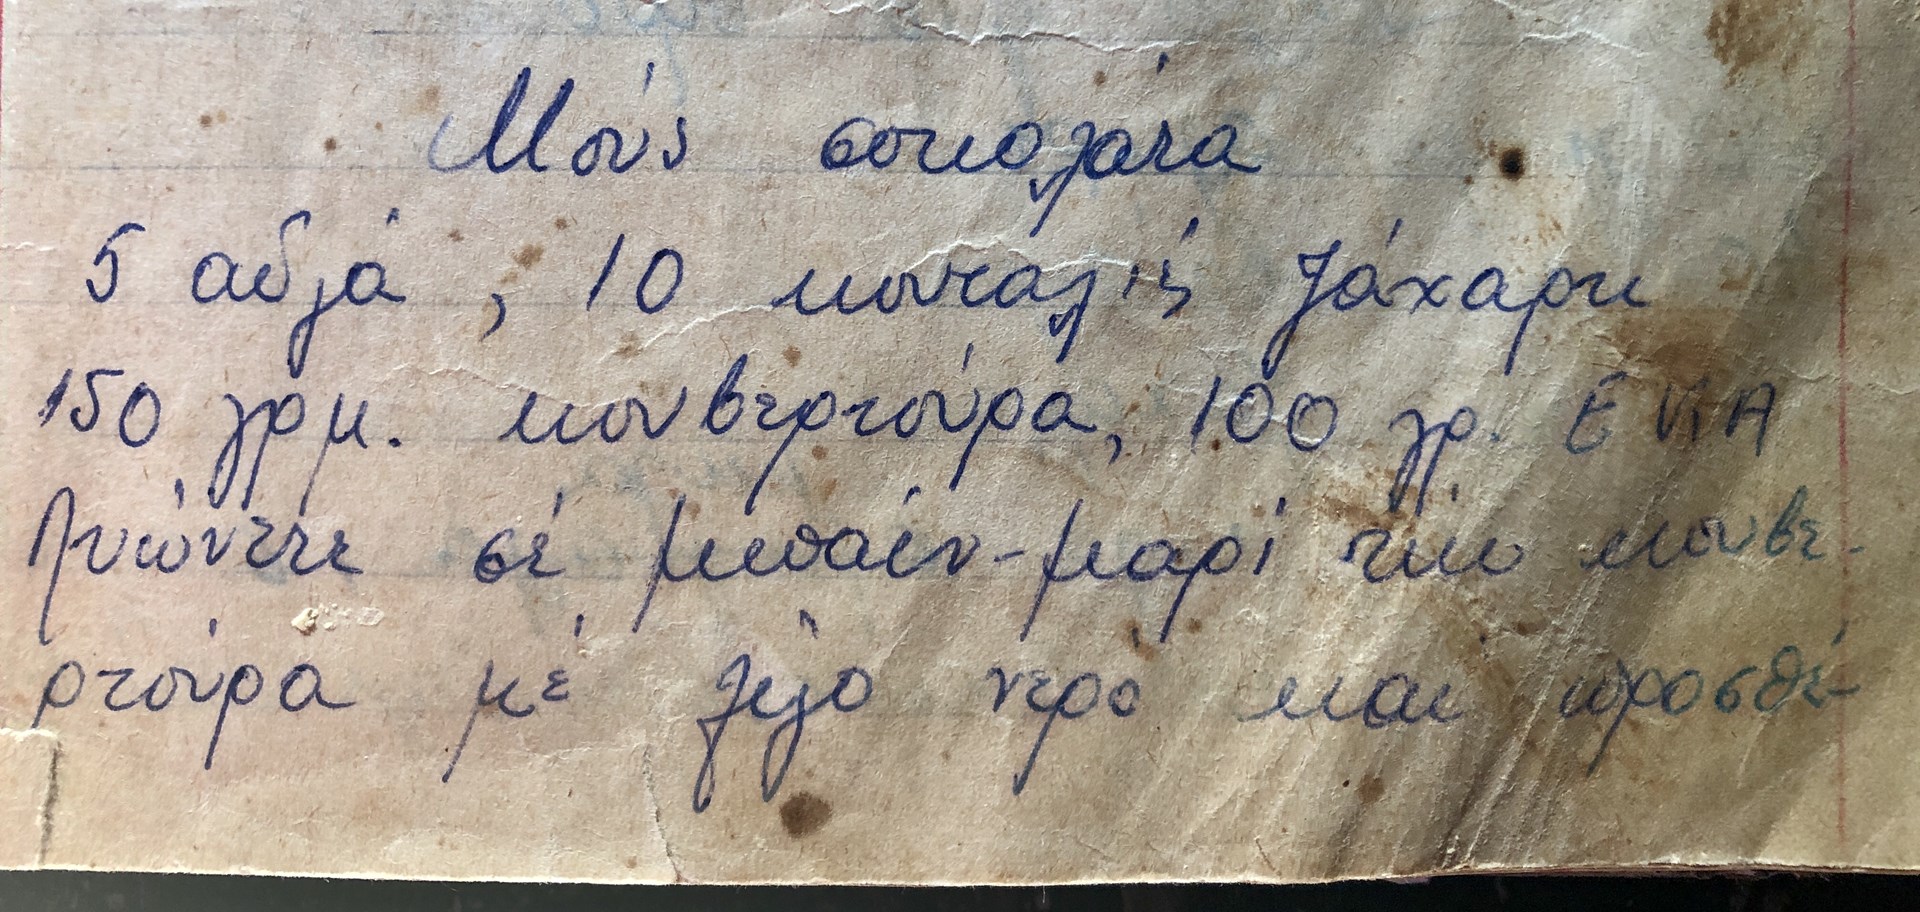 Μούς σοκολάτα
5 αὐγά, 10 κουταλιές ζάχαρη
150 γρμ. κουβερτούρα, 100 γρ. ΕΚΑ
Λυώνετε σέ μπαίν-μαρί τήν κουβε-
ρτούρα μέ λίγο νερό και προσθέ-